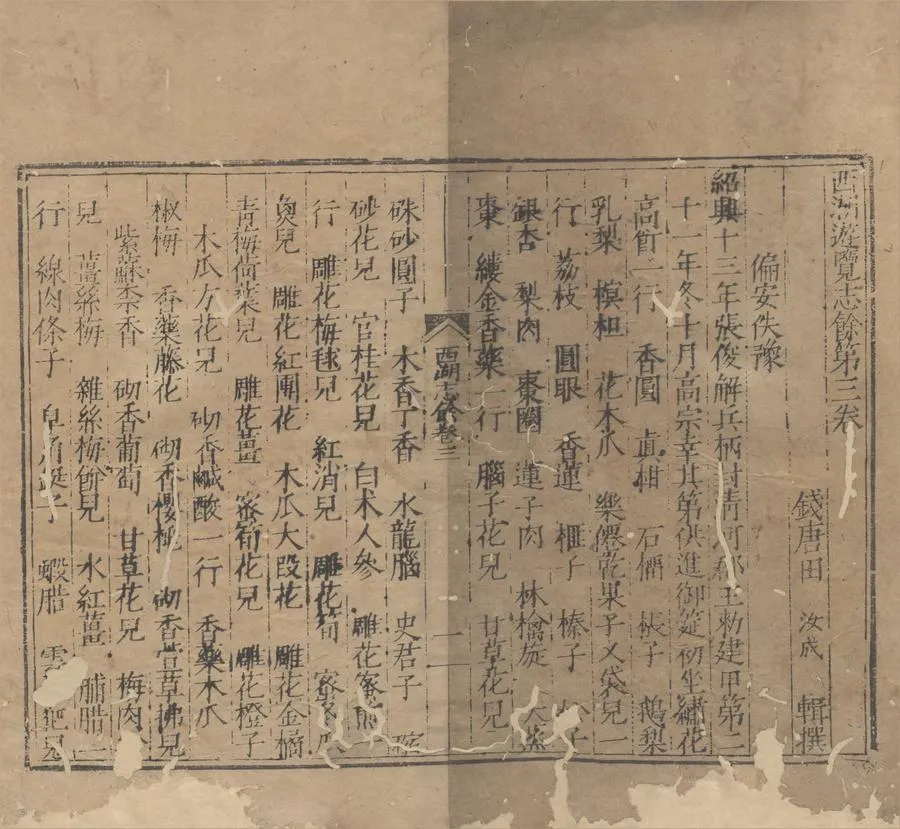 西湖遊覽志餘第三卷
錢唐田 汝成 輯撰
偏安佚豫
紹興十三年張俊解兵柄封清河郡王勅建甲第二
十一年冬十月高宗幸其第供進御筵初坐繡花
高飣一行 香圓 真柑 石榴 棖子 鵝梨
乳梨 榠柤 花木瓜 樂僊乾果子叉袋兒一
行 荔枝 圓眼 香蓮 榧子 榛子 子
銀杏 梨肉 棗圈 蓮子肉 林檎旋 大蒸
棗 縷金香藥一行 腦子花兒 甘草花兒
西湖志餘卷三 一
硃砂圓子 木香丁香 水龍腦 史君子 縮
砂花兒 官桂花兒 白术人參 雕花蜜煎一
行 雕花梅毬兒 紅消兒 雕花筍 蜜冬瓜
魚兒 雕花紅團花 木瓜大段花 雕花金橘
青梅荷葉兒 雕花薑 蜜筍花兒 雕花橙子
木瓜方花兒 砌香鹹酸一行 香藥木瓜
椒梅 香藥藤花 砌香櫻桃 砌香萱草拂兒
紫蘇柰香 砌香葡萄 甘草花兒 梅肉
兒 薑絲梅 雜絲梅餅兒 水紅薑 脯腊一
行 線肉條子 皂角鋌子 蝦腊 雲 兒